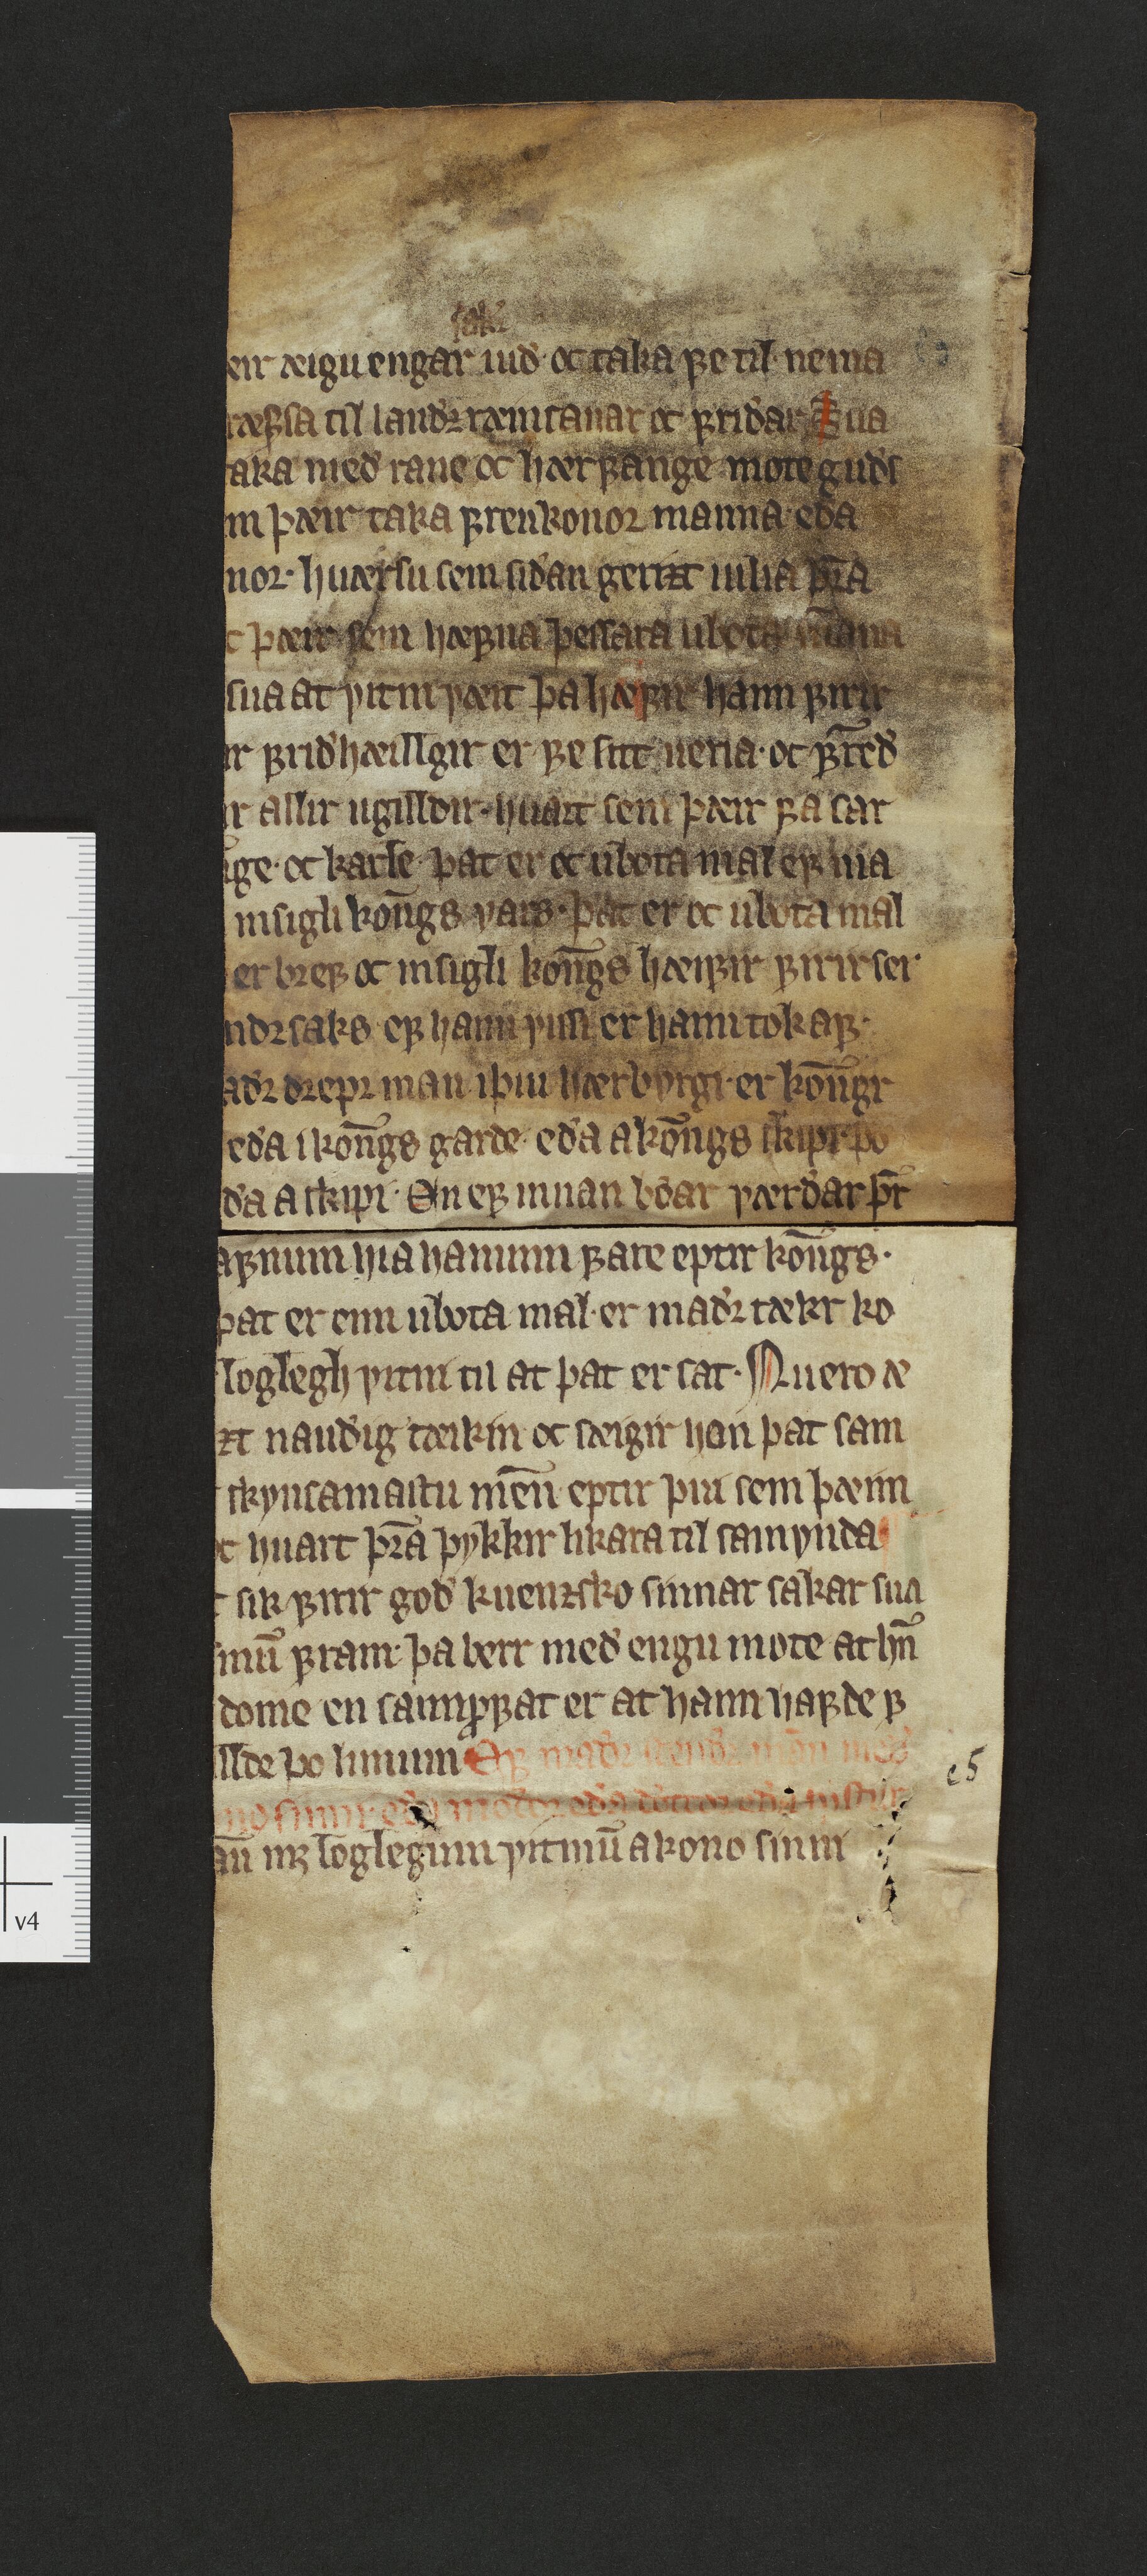 sakir
eir æigu engar uid· oc taka fe til· nema
ræfsa til landz ræinsanar oc fridar Sua
aka med rane oc hærfange mote guds
m þæir taka frenkonor manna· eda
nor· huærsu sem sidan gerizt uilia þr̄a
c þæir sem hæfna þessara ubota m̄anna
sua at vitni væit þa hæfir hann firir
ir fridhæillgir er fe sitt ueria· oc fred
ir allir ugilldir· huart sem þæir fa sar
ūge· oc karle· þat er oc ubota mal ef ma
insigli kōngs vars· þat er oc ubota mal
er bref oc insigli kōngs hæifir firir ser
ndz saks ef hann vissi er hann tok af·
adz drepr man i þui hærbyrgi· er kōngr
eda i kōngs garde· eda a kōngs skipi· þo
da a skipi· En ef innan bdar værdar þr̄
afnum hia hanum fare eptir kōngs·
þat er enn ubota mal· er madz tækr ko
loglegh vitni til at þat er sat· Nu ero æ
zt naudig tæikin oc sæigir hon þat sam
skynsamastu men̄ eptir þui sem þæim
oc huart þr̄a þykkir likara til sannynda
sik firir god kuenzsko sinnar sakar sua
inū fram· þa berr med engu mote at hn̄
dome en sannprfat er at hann hafde f
illde þo linum Ef madz stendz man med
no sinni eda modor eda dottor eda systur
an̄ mz loglegum vitnū a kono sinni
c5
v4